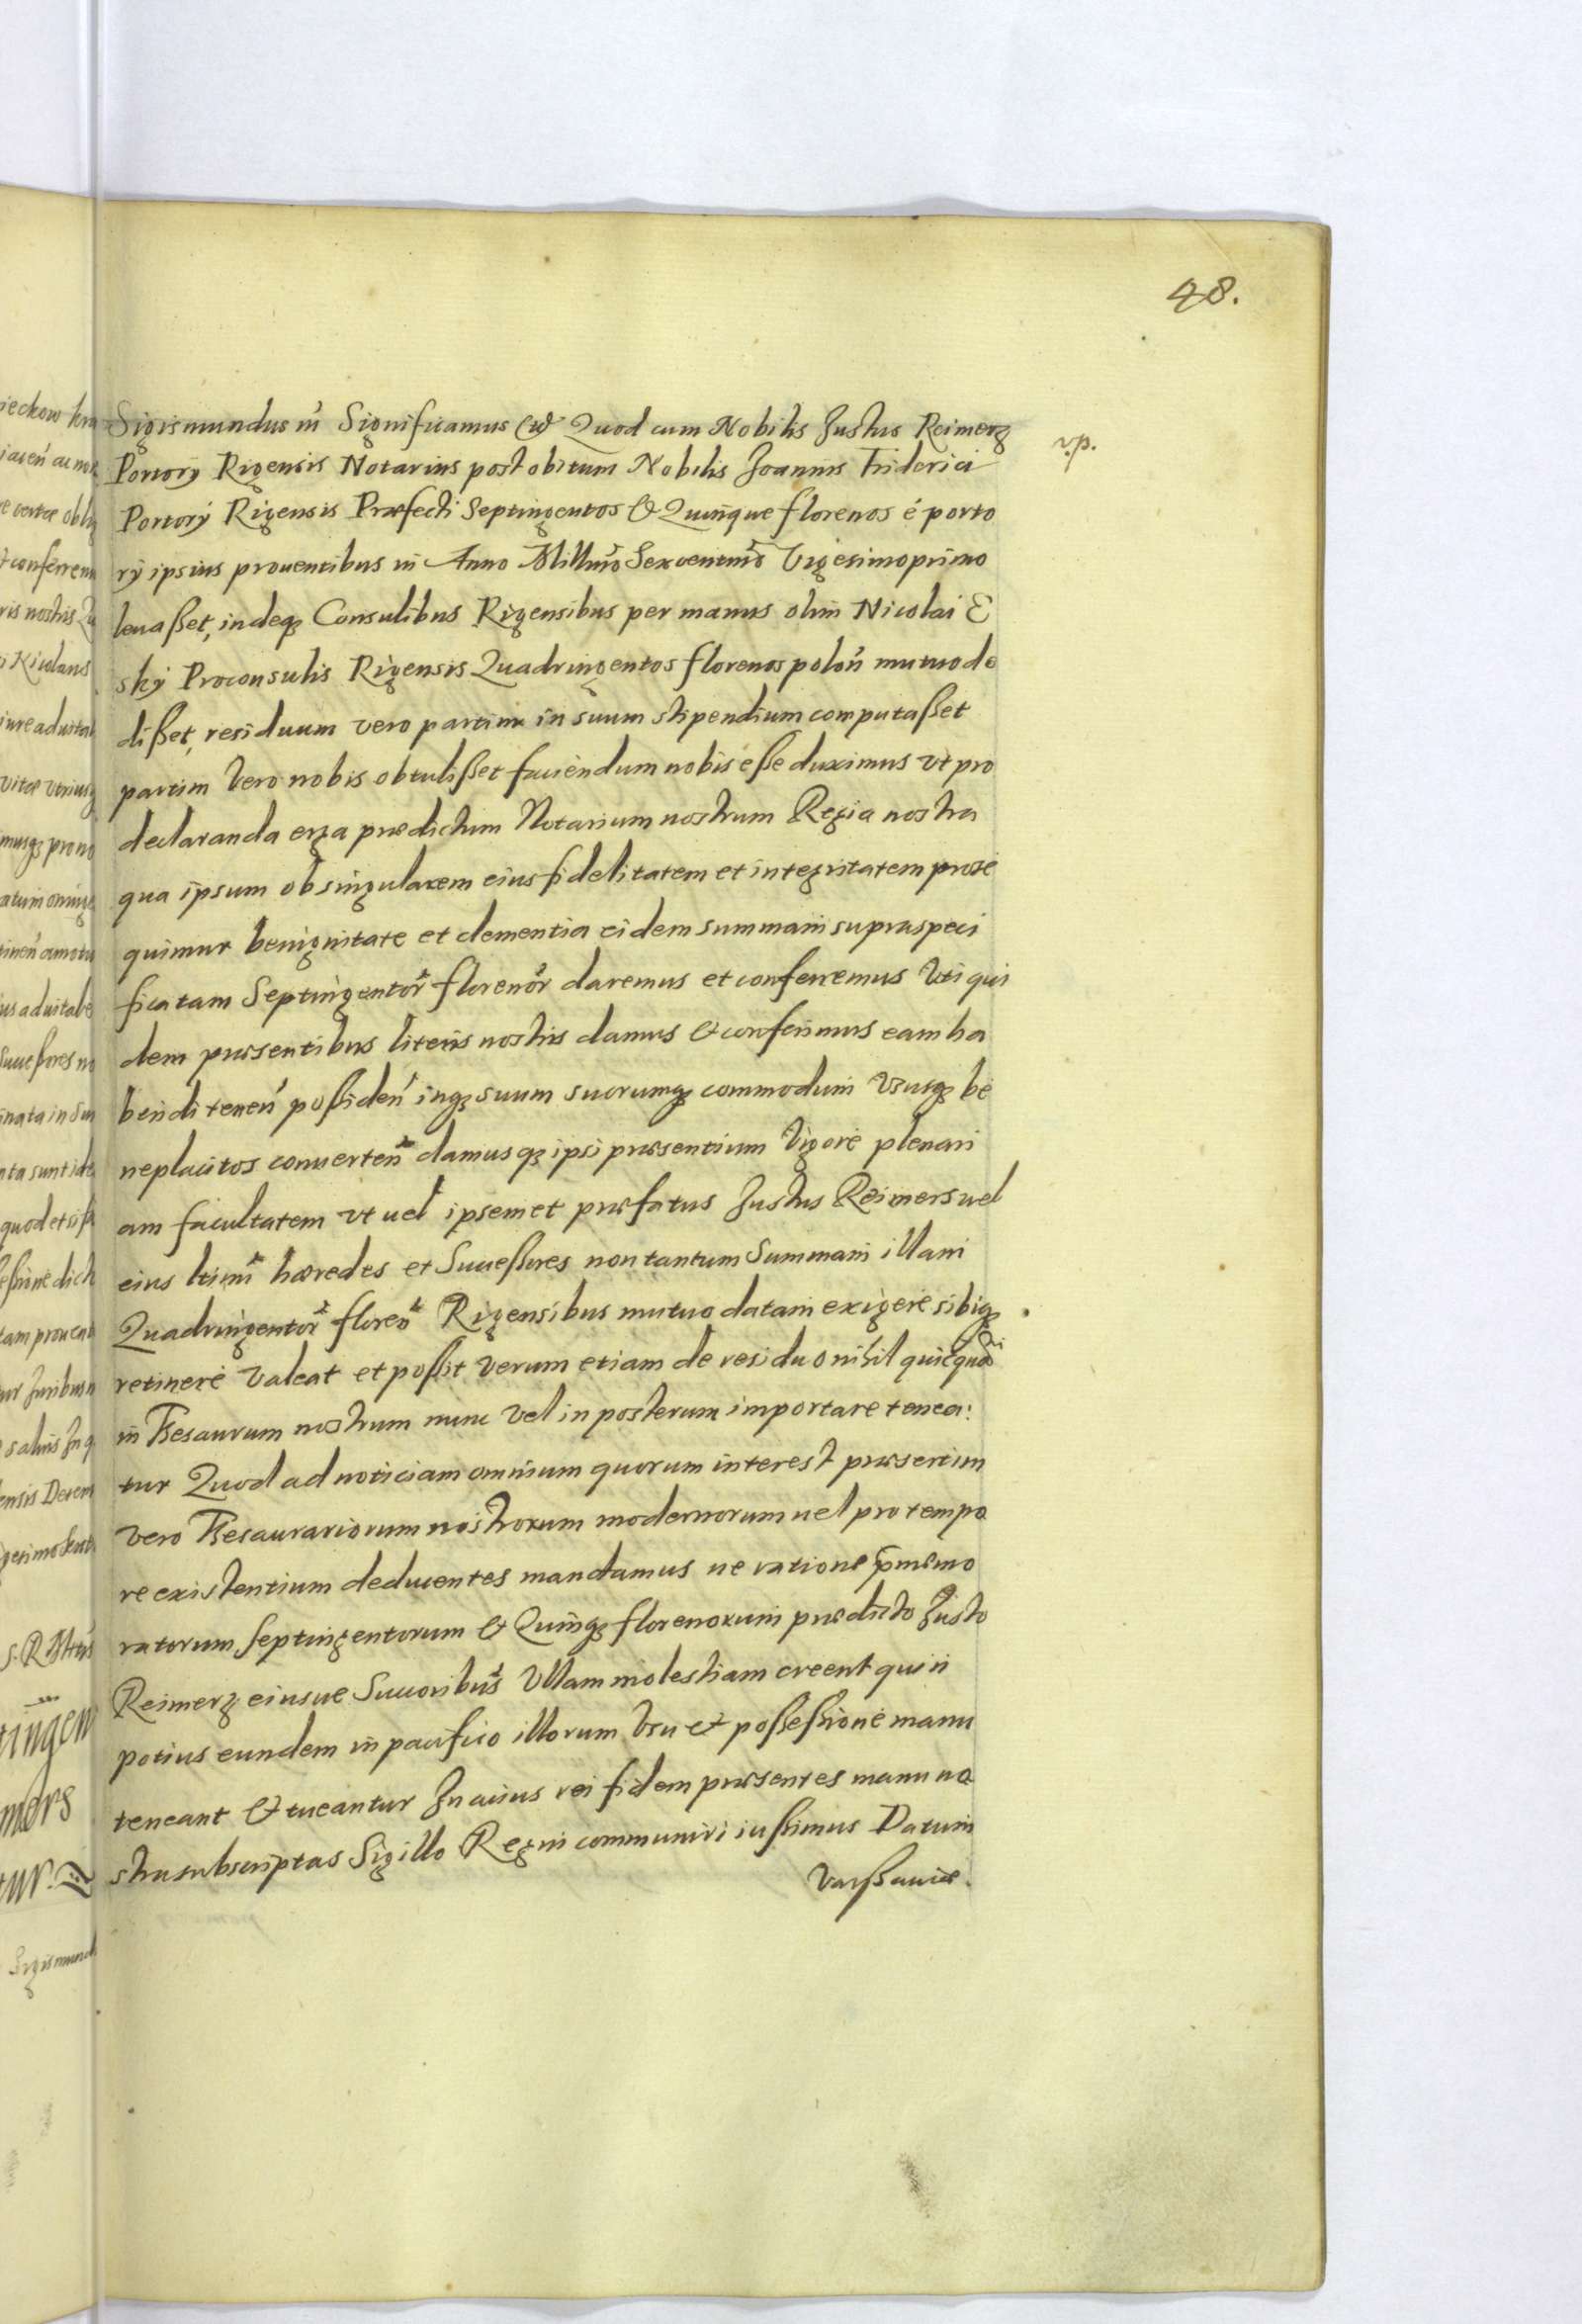 48.
Sigismundus III Significamus &c Quod cum Nobilis Justus Reimerz
v.p.
Portorÿ Rigensis Notarius post obitum Nobilis Joannis Friderici
Portorÿ Rigensis Præfecti Septingentos & Quinque florenos é porto
rÿ ipsius prouentibus in Anno Millmo Sexcentmo Vigesimoprimo
leuaßet, indeq3 Consulibus Rigensibus per manus olim Nicolai E
skÿ Proconsulis Rigensis Quadringentos florenos polon̄ mutuo de
dißet, residuum vero partim in suum stipendium computaßet
partim Vero nobis obtulißet faciendum nobis eße duximus vt pro
declaranda erga prædictum Notarium nostrum Regia nostra
qua ipsum ob singularem eius fidelitatem et integritatem prose
quimur benignitate et clementia eidem summam supraspeci
ficatam Septingentor florenor daremus et conferremus Vti qui
dem præsentibus literis nostris damus & conferimus eam ha
bendi tenen̄ poßiden̄ inq3 suum suorumq3 commodum Vsusq3 be
neplacitos conuerten̄ damusq3 ipsi præsentium Vigore plenari
am facultatem vt uel ipsemet præfatus Justus Reimers uel
eius ltimi hæredes et Succeßores non tantum Summam illam
Quadringentor floreo Rigensibus mutuo datam exigere sibiq3
retinere Valeat et poßit Verum etiam de residuo nihil quicquam
in Thesaurum nostrum nunc Vel in posterum importare tenea:
tur Quod ad noticiam omnium quorum interest præsertim
vero Thesaurariorum nostrorum modernorum uel pro tempo
re existentium deducentes mandamus ne ratione præmemo
ratorum Septingentorum & Quinq3 florenorum prædicto Justo
Reimerz eiusue Succoribus Vllam molestiam creent quin
potius eundem in pacifico illorum Vsu & poßeßione manu
teneant & tueantur In cuius rei fidem præsentes manu no
stra subscriptas Sigillo Regni communiri iußimus Datum
Varßauiæ.